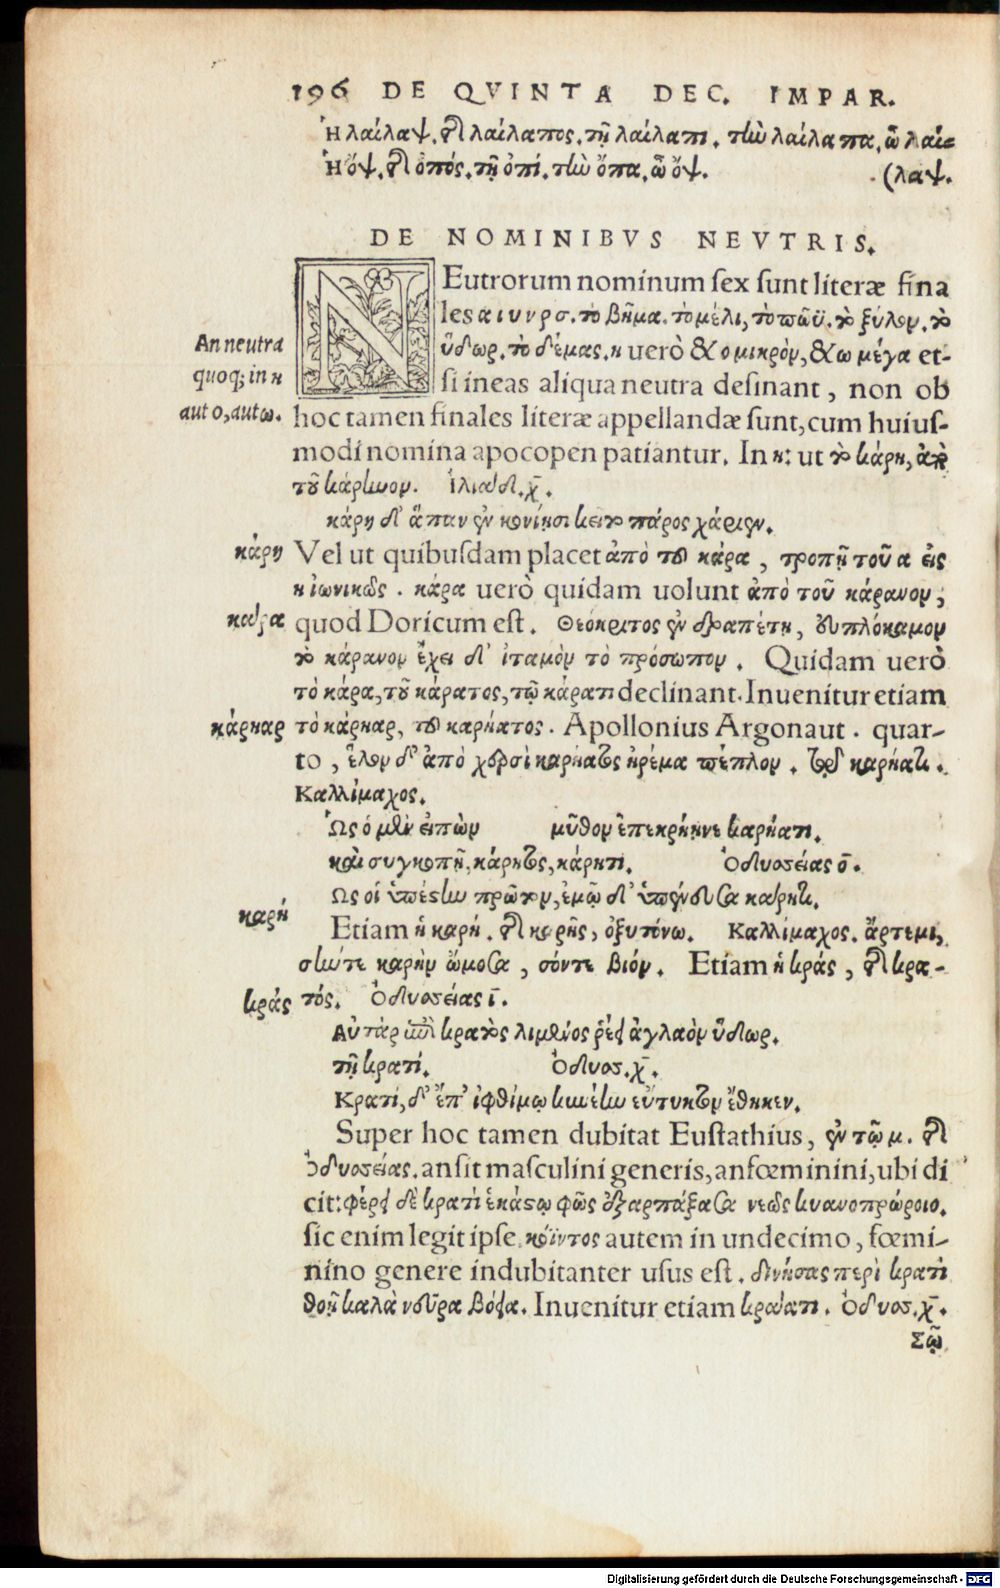 196 DE QVINTA DEC. IMPAR.
Ἡ λαίλαψ. τῆς λαίλαπος. τῇ λαίλαπι. τὴν λαίλαπα, ὦ λαί=
Ἡ ὄψ. τῆς ὀπός. τῇ ὀπί. τὴν ὄπα, ὦ ὄψ. (λαψ.
DE NOMINIBVS NEVTRIS.
NEutrorum nominum sex sunt literæ fina
les α ι υ ν ρ σ. τὸ βῆμα. τὸ μέλι, τὸ πῶϋ. τὸ ξύλον. τὸ
ὕδωρ. τὸ δέμας. η uerò & ο μικρὸν, & ω μέγα et-
si in eas aliqua neutra desinant, non ob
An neutra
quoq; in η
aut ο, aut ω.
hoc tamen finales literæ appellandæ sunt, cum huius-
modi nomina apocopen patiantur. In η: ut τὸ κάρη, ἀπὸ
τοῦ κάρηνον. Ἰλιάδ. χ̄.
κάρη δ' ἅπαν ἐν κονίῃσι κεῖτο πάρος χάριεν.
κάρη
Vel ut quibusdam placet ἀπὸ τοῦ κάρα, τροπῇ τοῦ α εἰς
η ἰωνικῶς. κάρα uerò quidam uolunt ἀπὸ τοῦ κάρανον,
κάρα
quod Doricum est. Θεόκριτος ἐν δραπέτῃ, οὐπλόκαμον
τὸ κάρανον ἔχει δ' ἰταμὸν τὸ πρόσωπον. Quidam uerò
τὸ κάρα, τοῦ κάρατος, τῷ κάρατι declinant. Inuenitur etiam
κάρηαρ
τὸ κάρηαρ, τοῦ καρήατος. Apollonius Argonaut. quar-
to, ἕλον δ' ἀπὸ χερσὶ καρήατος ἠρέμα πέπλον. καρήατι.
Καλλίμαχος.
Ὣς ὁ μὲν εἰπὼν μῦθον ἐπεκρήηνε καρήατι.
καὶ συγκοπῇ, κάρητος, κάρητι. Ὀδυσσείας ō.
Ὣς οἱ ὑπέστην πρῶτον, ἐμῷ δ' ὑπένευσα κάρητι.
καρή
Etiam ἡ καρή. τῆς καρῆς, ὀξυτόνω. Καλλίμαχος. ἄρτεμι,
σὴν τε καρὴν ὤμοσα, σόν τε βιόν. Etiam ἡ κράς, τῆς κρα-
κράς
τός. Ὀδυσσείας ῑ.
Αὐτὰρ ἐπὶ κρατὸς λιμένος ῥέει ἀγλαὸν ὕδωρ.
τῇ κρατί. Ὀδυσ. χ̄.
Κρατί, δ' ἔπ' ἰφθίμῳ κυνέην εὔτυκτον ἔθηκεν.
Super hoc tamen dubitat Eustathius, ἐν τῷ μ. τῆς
Ὀδυσσείας. an sit masculini generis, an fœminini, ubi di
cit: φέρει δὲ κρατὶ ἑκάστῳ φῶς ἐξαρπάξασα νεὼς κυανοπρώροιο.
sic enim legit ipse. κόϊντος autem in undecimo, fœmi-
nino genere indubitanter usus est. δινήσας περὶ κρατὶ
θοῇ καλὰ νεῦρα βόεια. Inuenitur etiam κράατι. Ὀδυσ. χ̄.
Σῷ
Digitalisierung gefördert durch die Deutsche Forschungsgemeinschaft - DFG